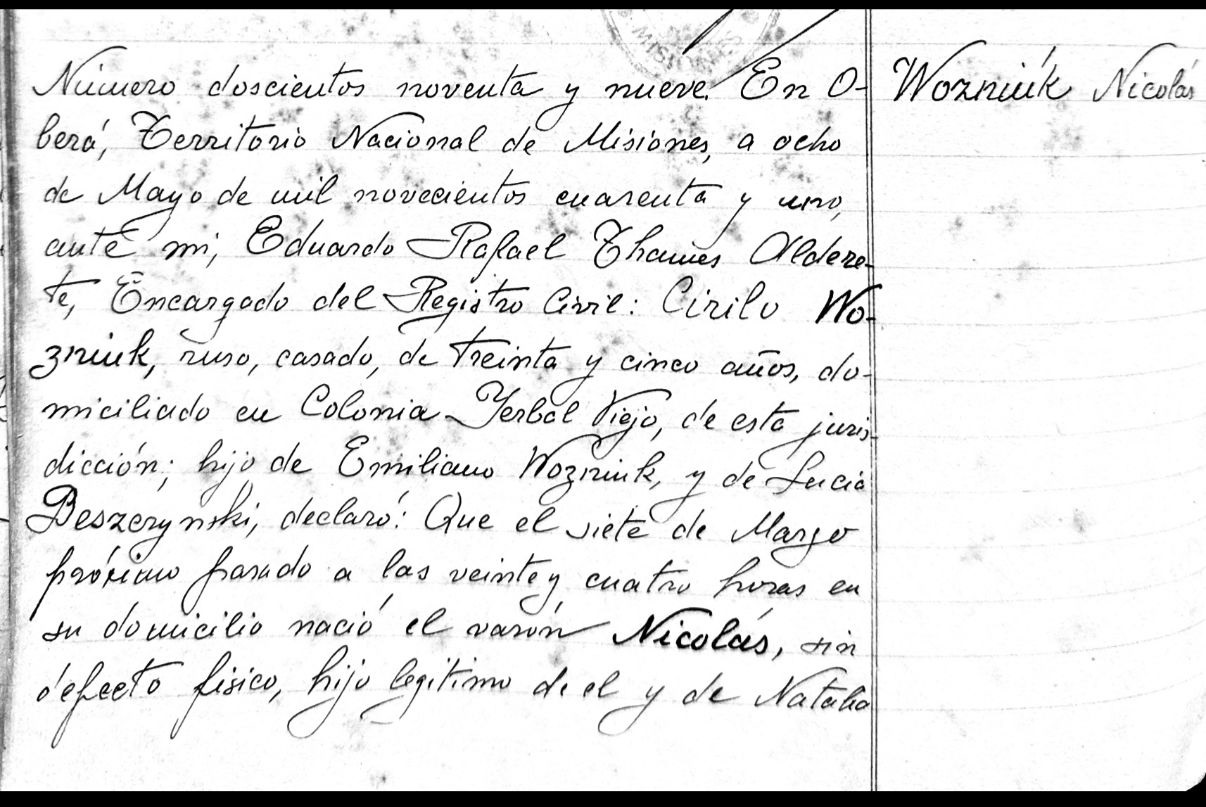 MISIONES
Número doscientos noventa y nueve. En O-
berá, Territorio Nacional de Misiones, a ocho
de Mayo de mil novecientos cuarenta y uno,
ante mi, Eduardo Rafael Thames Aldere-
te, Encargado del Registro Civil: Cirilo Wo-
zniuk, ruso, casado, de treinta y cinco años, do-
miciliado en Colonia Yerbal Viejo, de esta juris-
dicción; hijo de Emiliano Wozniuk, y de Lucia
Beszczynski, declaró: Que el siete de Marzo
próximo pasado a las veinte y cuatro horas en
su domicilio nació el varón Nicolás, sin
defecto fisico, hijo legitimo de el y de Natalia
Wozniuk Nicolás